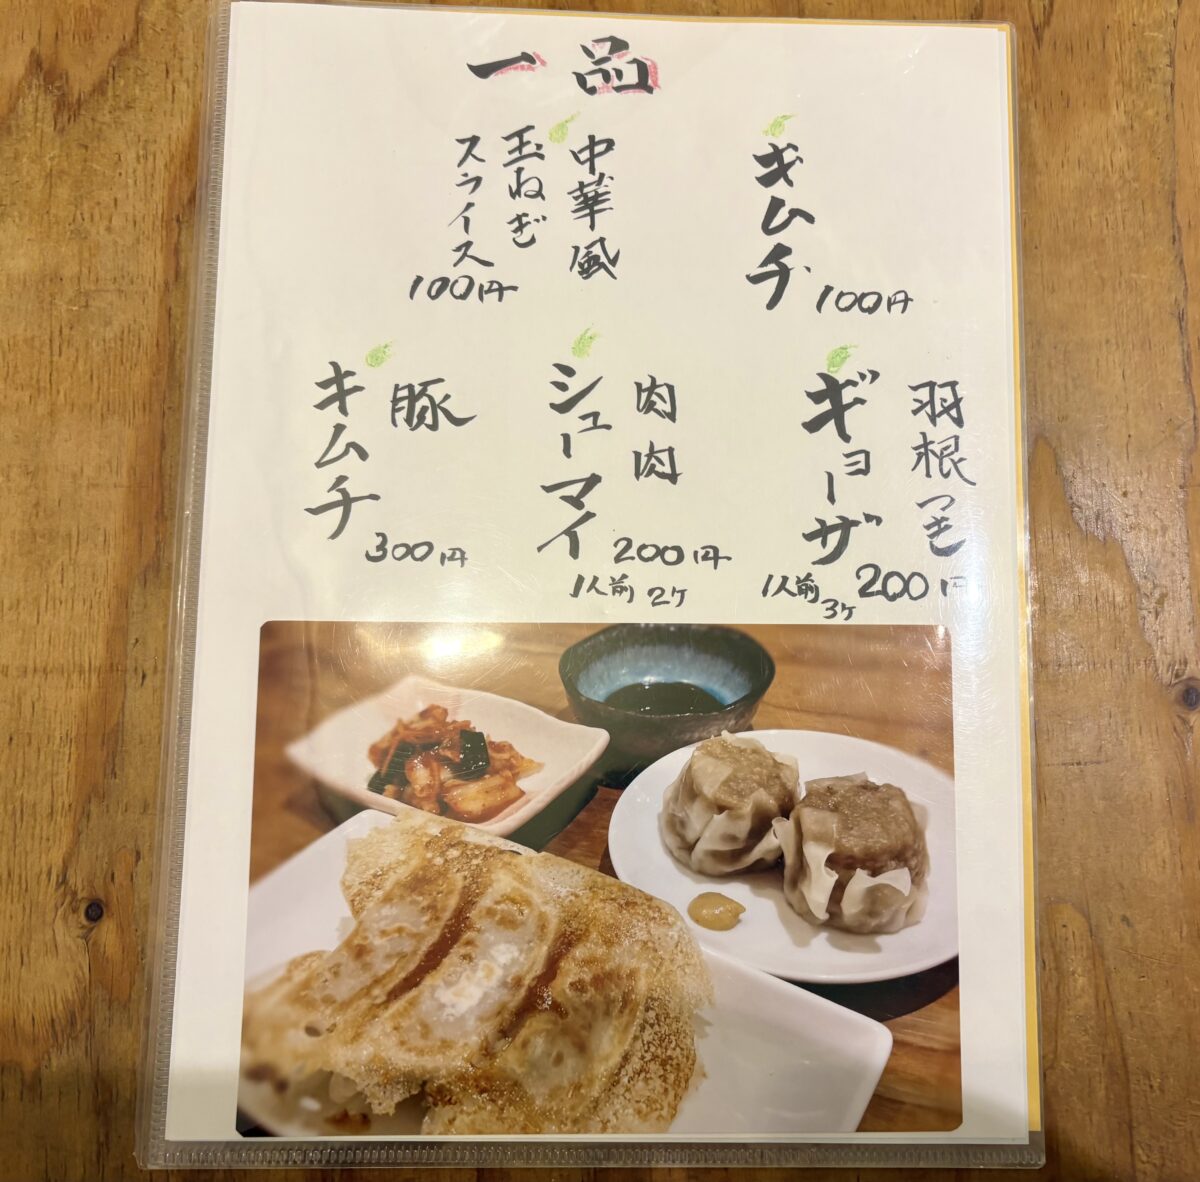 一品
キムチ
100円
中華風
玉ねぎ
スライス
100円
羽根つき
ギョーザ
1人前
3ヶ
200円
肉肉
シューマイ
200円
1人前 2ヶ
豚
キムチ
300円